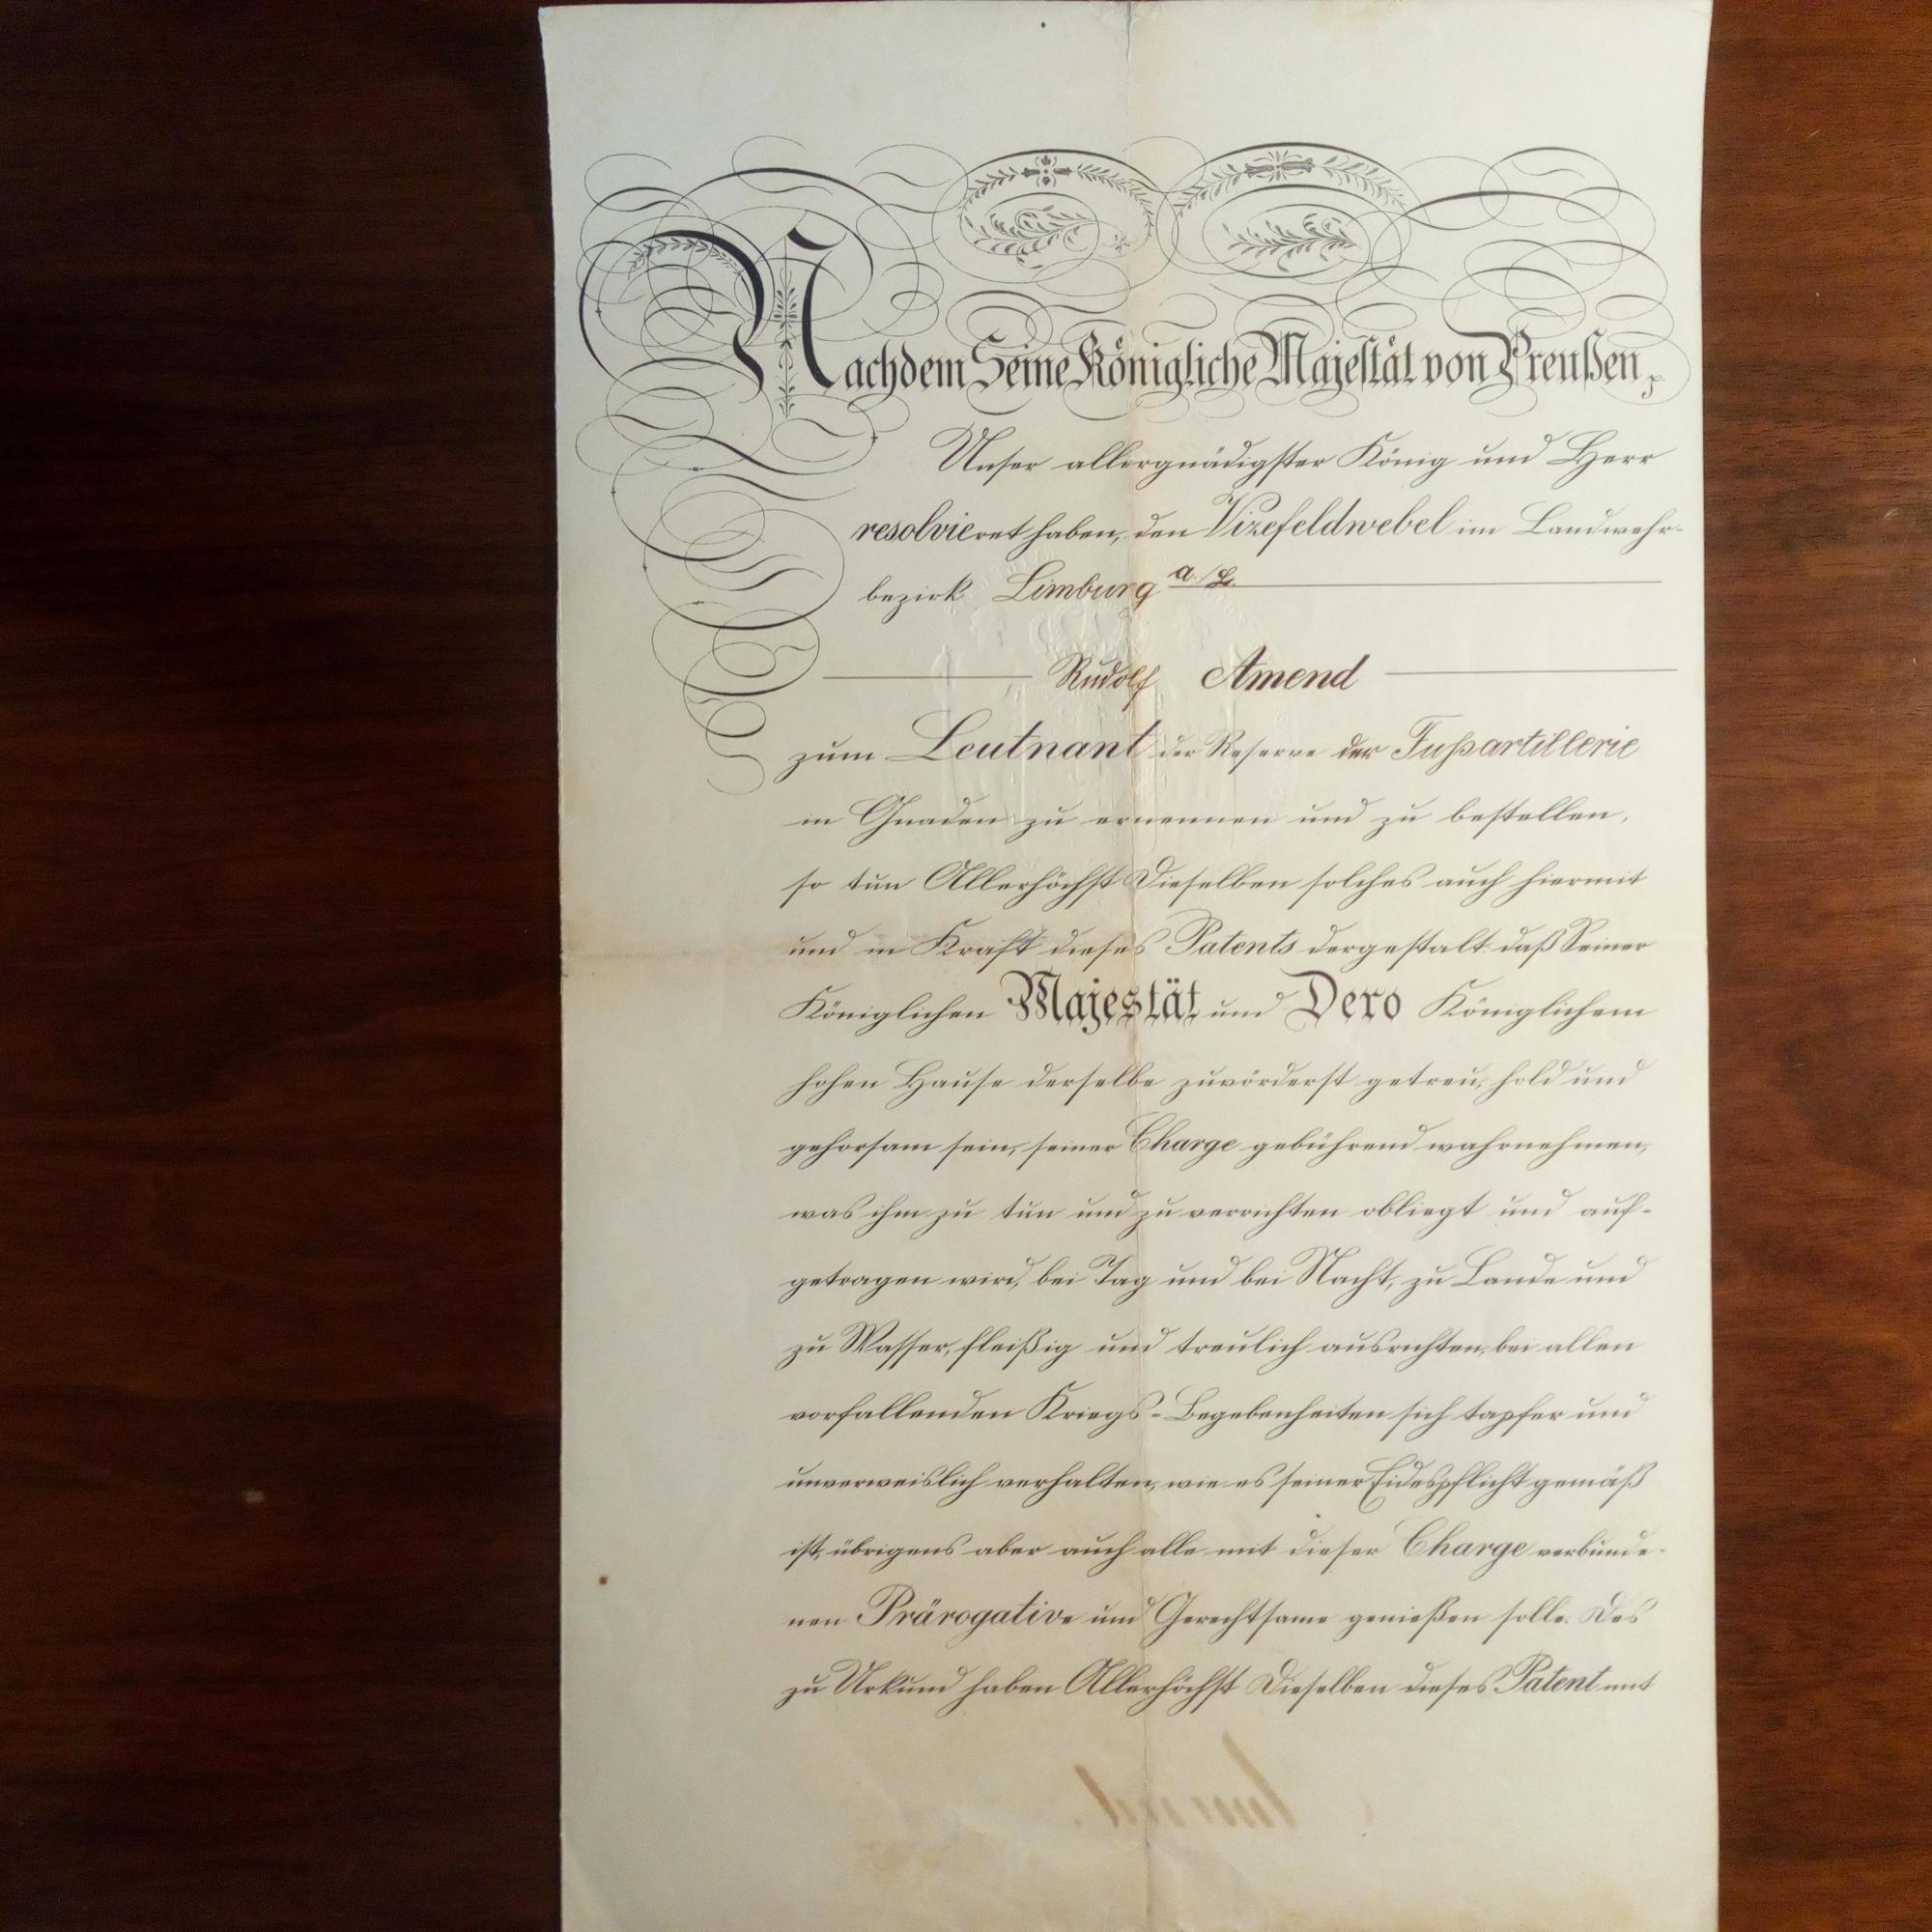 Nachdem Seine Königliche Majestät von Preußen,
Unser allergnädigster König und Herr
resolvieret haben, den Vizefeldwebel im Landwehr-
bezirk Limburg a./L.
Rudolf Amend
zum Leutnant der Reserve der Fußartillerie
in Gnaden zu ernennen und zu bestellen,
so tun Allerhöchst Dieselben solches auch hiermit
und in Kraft dieses Patents dergestalt: daß Seiner
Königlichen Majestät und Dero Königlichem
hohen Hause derselbe zuvörderst getreu, hold und
gehorsam sein, seiner Charge gebührend wahrnehmen,
was ihm zu tun und zu verrichten obliegt und auf-
getragen wird, bei Tag und bei Nacht, zu Lande und
zu Wasser, fleißig und treulich ausrichten, bei allen
vorfallenden Kriegs-Begebenheiten sich tapfer und
unverweislich verhalten, wie es seiner Eidespflicht gemäß
ist, übrigens aber auch alle mit dieser Charge verbunde-
nen Prärogative und Gerechtsame genießen solle. Des
zu Urkund haben Allerhöchst Dieselben dieses Patent mit